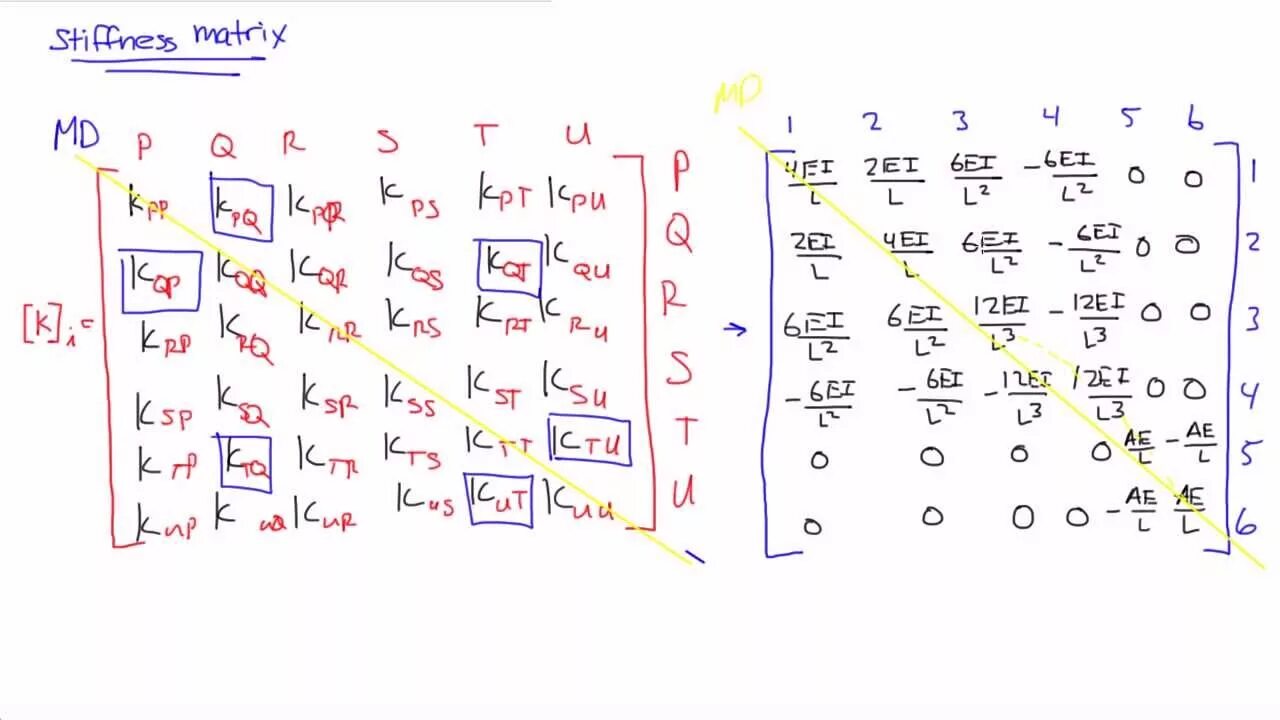 Stiffness matrix
MD P Q R S T U
MD 1 2 3 4 5 6
K_PP K_PQ K_PR K_PS K_PT K_PU P
K_QP K_QQ K_QR K_QS K_QT K_QU Q
[K]_i = K_RP K_RQ K_RR K_RS K_RT K_RU R
K_SP K_SQ K_SR K_SS K_ST K_SU S
K_TP K_TQ K_TR K_TS K_TT K_TU T
K_UP K_UQ K_UR K_US K_UT K_UU U
→ 4EI/L 2EI/L 6EI/L² -6EI/L² 0 0 1
2EI/L 4EI/L 6EI/L² -6EI/L² 0 0 2
6EI/L² 6EI/L² 12EI/L³ -12EI/L³ 0 0 3
-6EI/L² -6EI/L² -12EI/L³ 12EI/L³ 0 0 4
0 0 0 0 AE/L -AE/L 5
0 0 0 0 -AE/L AE/L 6